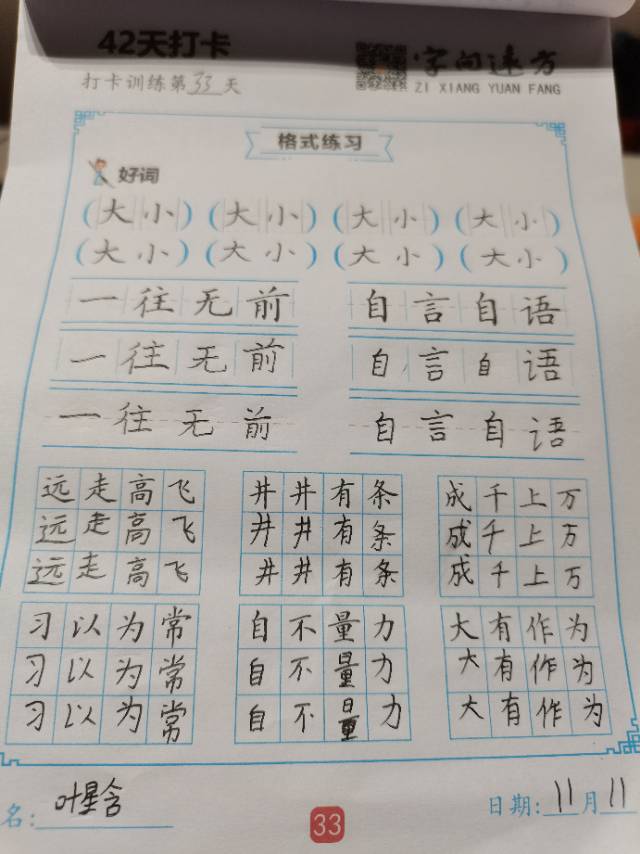 42天打卡
字向远方
打卡训练第33天
ZI XIANG YUAN FANG
格式练习
好词
(大小) (大小) (大小) (大小)
(大小) (大小) (大小) (大小)
一往无前 自言自语
一往无前 自言自语
一往无前 自言自语
远走高飞 井井有条 成千上万
远走高飞 井井有条 成千上万
远走高飞 井井有条 成千上万
习以为常 自不量力 大有作为
习以为常 自不量力 大有作为
习以为常 自不量力 大有作为
名: 叶星含 日期: 11月11
33